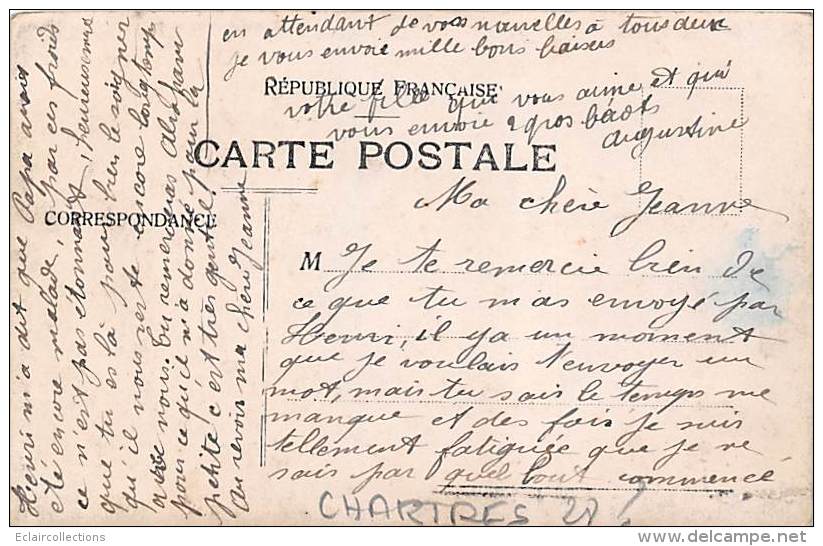 RÉPUBLIQUE FRANÇAISE
CARTE POSTALE
CORRESPONDANCE
Ma chère Jeanne
M Je te remercie bien de
ce que tu m'as envoyé par
Henri, il y a un moment
que je voulais t'envoyer un
mot, mais tu sais le temps me
manque et des fois je suis
tellement fatiguée que je ne
sais par quel bout commencé
Henri m'a dit que Papa avait
été encore malade, par ces froids
ce n'est pas étonnant, heureusement
que tu es là pour bien le soigner
qu'il nous reste encore longtemps
avec nous. Tu remercieras
pour ce qu'il m'a donné pour la
petite c'est très gentil.
Au revoir ma chère Jeanne
en attendant de vos nouvelles à tous deux
je vous envoie mille bons baisers
votre fille qui vous aime et qui
vous envoie 2 gros bécots
Augustine
CHARTRES 28
Eclaircollections
delcampe.net